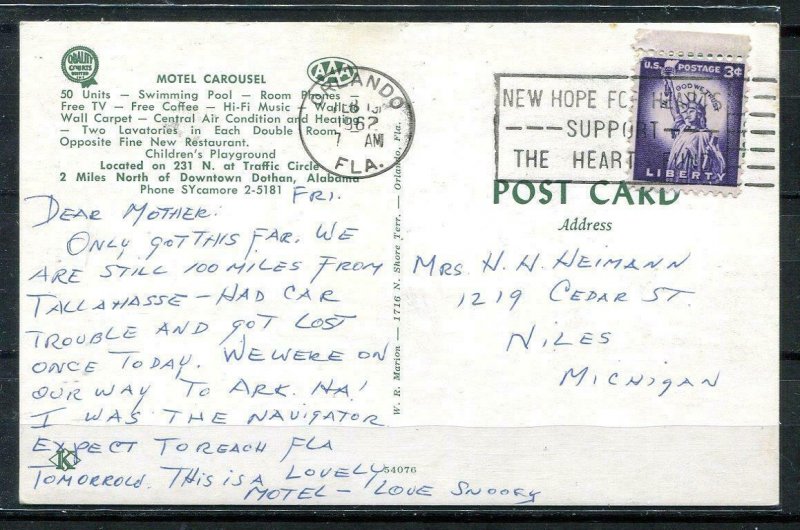 QUALITY
COURTS
UNITED
AAA
MOTEL CAROUSEL
50 Units — Swimming Pool — Room Phones
Free TV — Free Coffee — Hi-Fi Music — Wall to
Wall Carpet — Central Air Condition and Heating
— Two Lavatories in Each Double Room
Opposite Fine New Restaurant.
Children's Playground
Located on 231 N. at Traffic Circle
2 Miles North of Downtown Dothan, Alabama
Phone SYcamore 2-5181
FRI.
DEAR MOTHER.
ONLY GOT THIS FAR. WE
ARE STILL 100 MILES FROM
TALLAHASSE — HAD CAR
TROUBLE AND GOT LOST
ONCE TODAY. WE WERE ON
OUR WAY TO ARK. HA!
I WAS THE NAVIGATOR
EXPECT TO REACH FLA
TOMORROW. THIS IS A LOVELY
MOTEL — LOVE SNOOKY
K
54076
W. R. Marion — 1716 N. Shore Terr. — Orlando, Fla.
ORLANDO
1962
7 AM
FLA.
NEW HOPE FOR
SUPPORT
THE HEART FUND
U.S. POSTAGE 3¢
IN GOD WE TRUST
LIBERTY
POST CARD
Address
MRS. H. H. HEIMANN
1219 CEDAR ST.
NILES
MICHIGAN